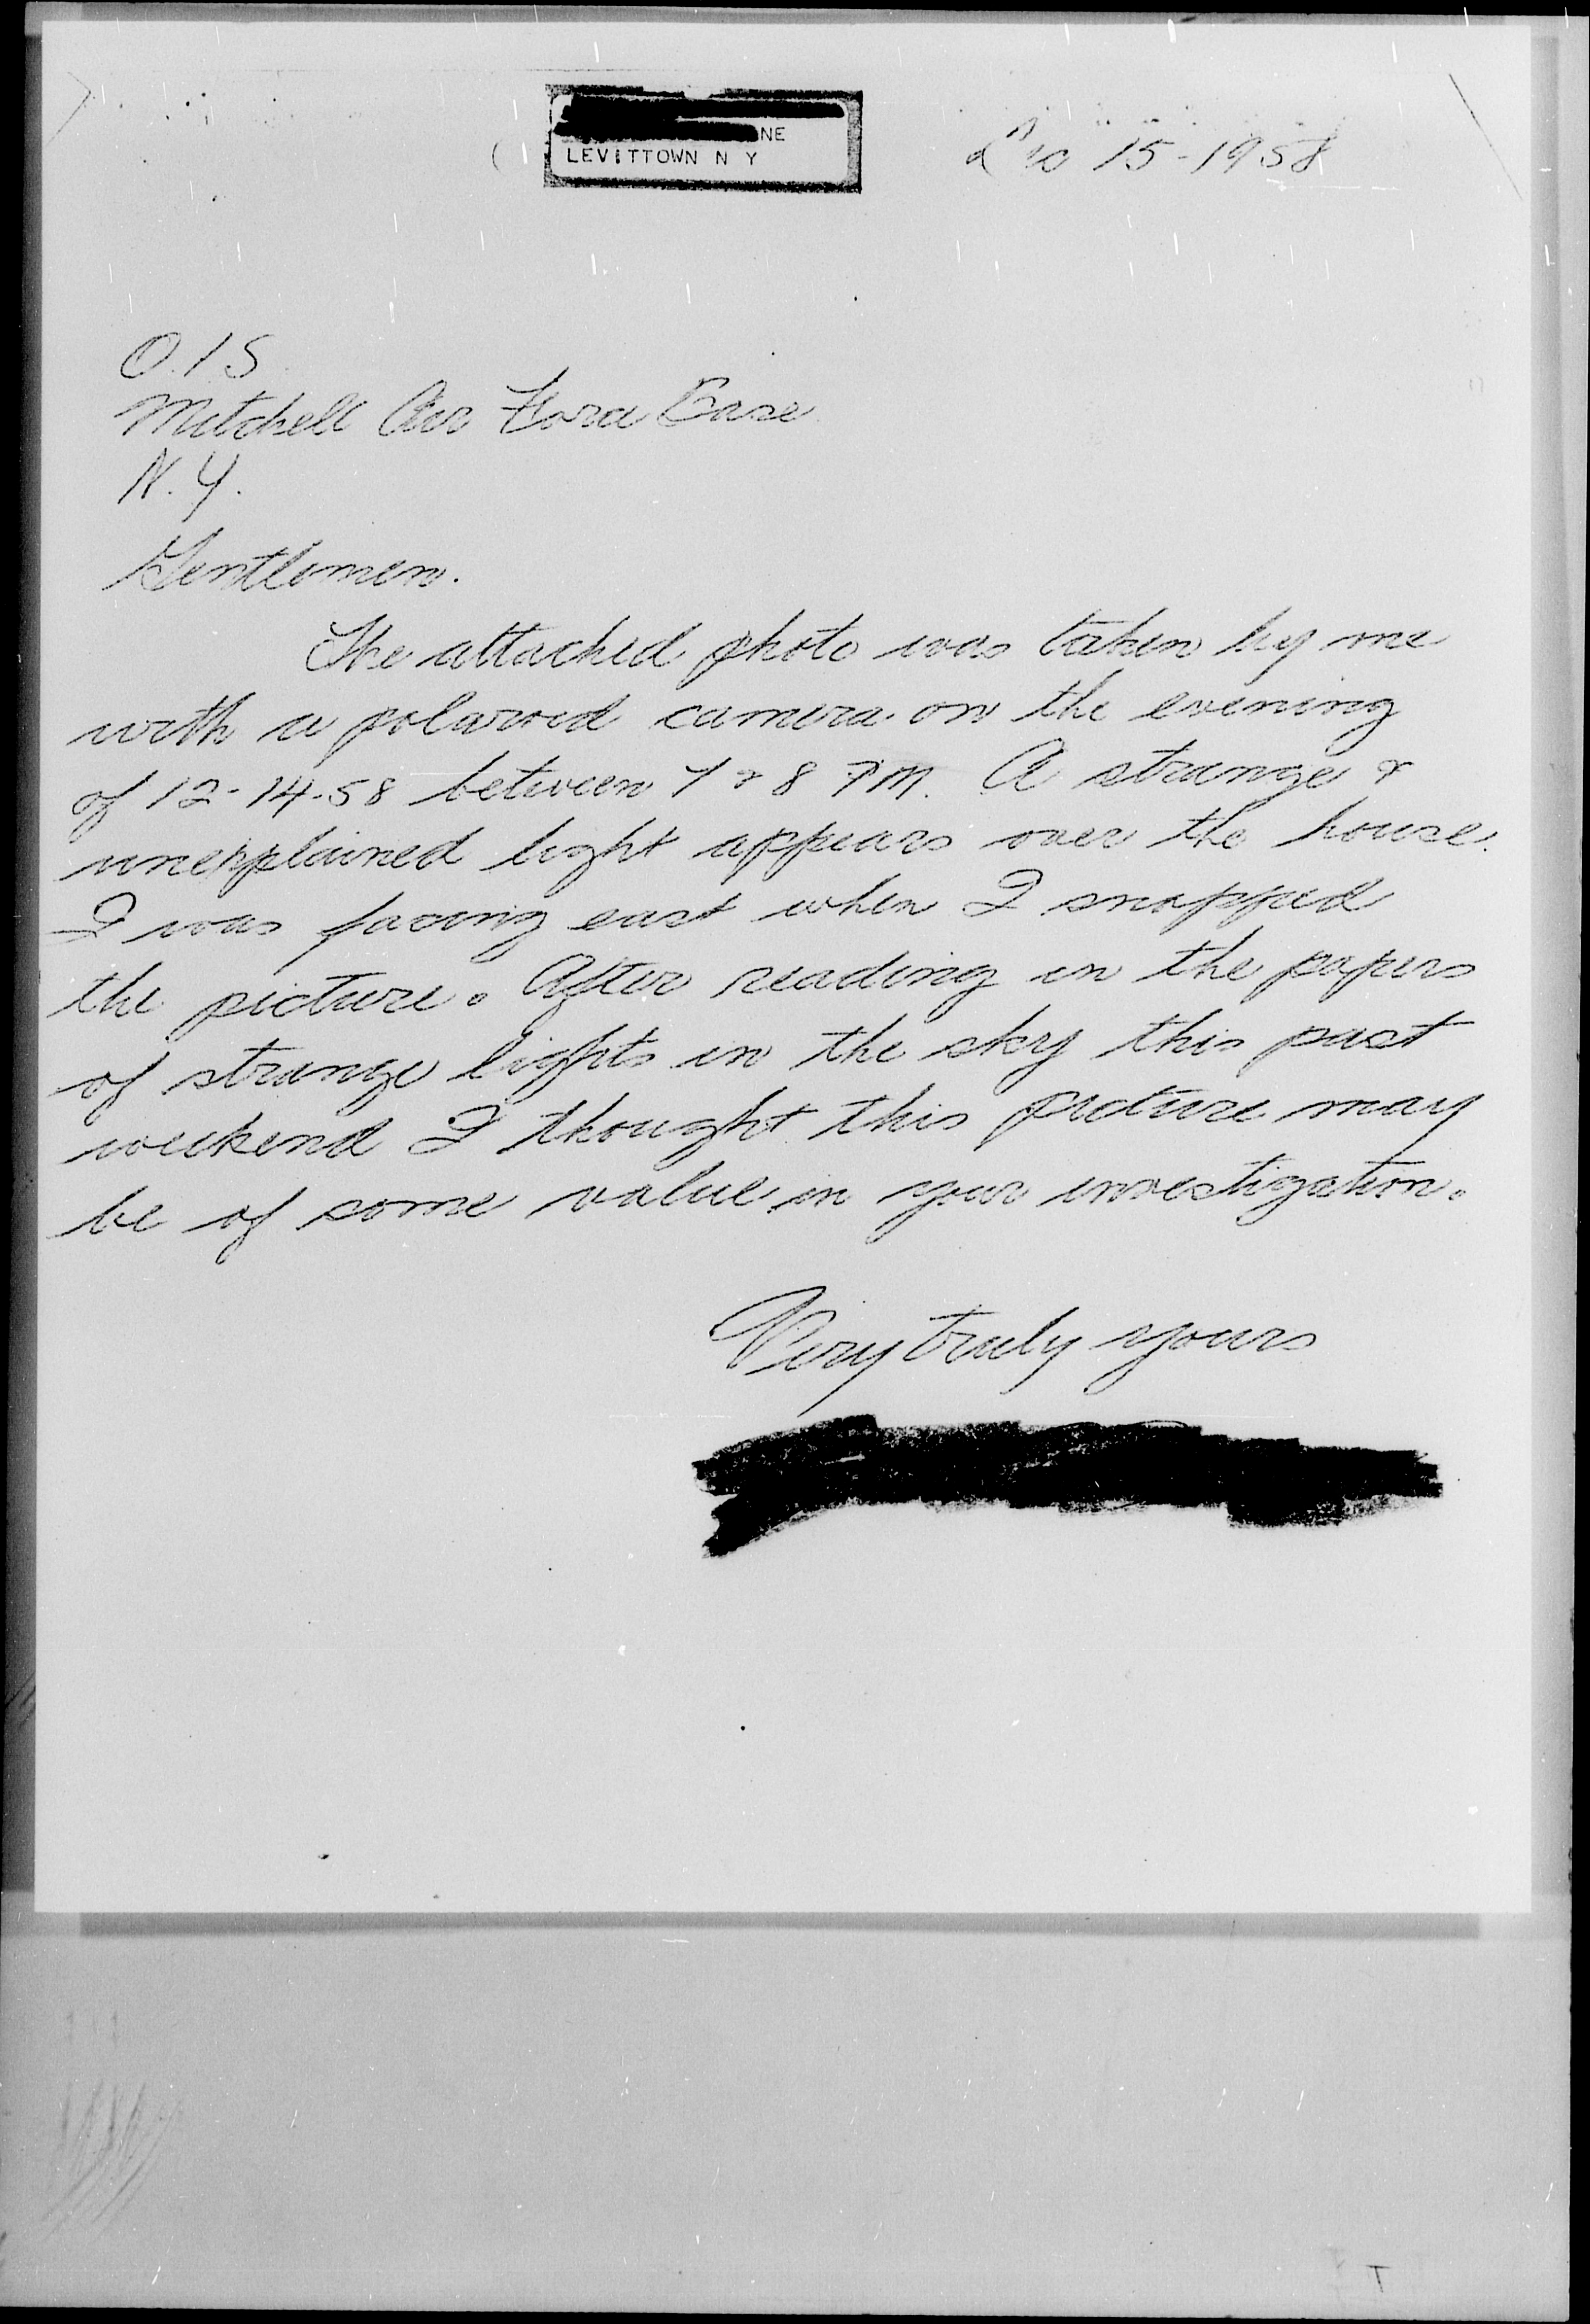 NE
LEVITTOWN N Y
Dec 15-1958
O.I.S.
Mitchell Air Force Base
N.Y.
Gentlemen.
The attached photo was taken by me
with a polaroid camera on the evening
of 12-14-58 between 7 & 8 PM. A strange &
unexplained light appears over the house.
I was facing east when I snapped
the picture. After reading in the papers
of strange lights in the sky this past
weekend I thought this picture may
be of some value in your investigation.
Very truly yours